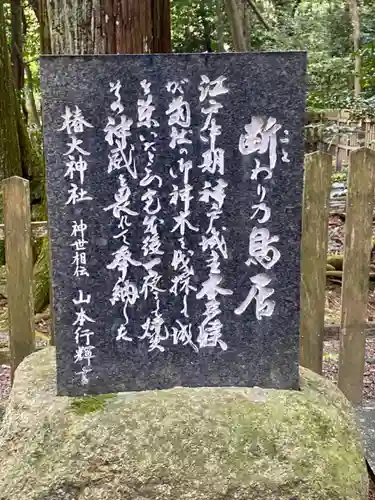 断わり乃鳥居
こと
江戸中期神戸城主本多候
が の御神木を伐採し城
を築いた 後一夜 焼失
その神威を畏れて奉納した
椿大神社 神世相伝 山本行輝書